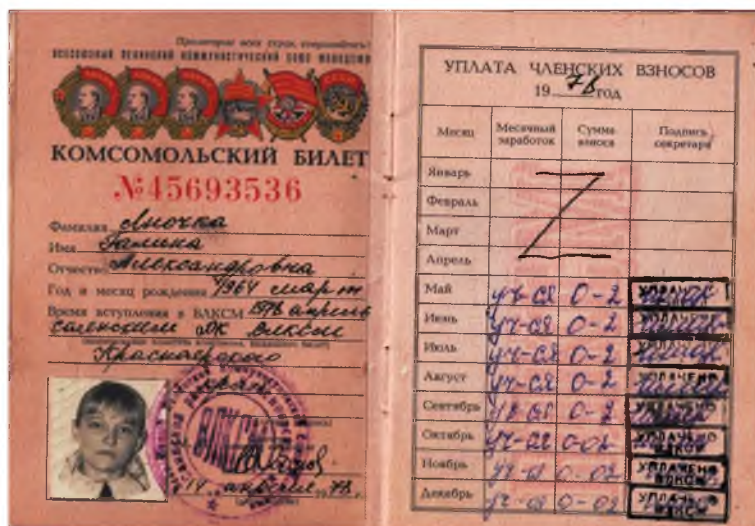 Пролетарии всех стран, соединяйтесь!
ВСЕСОЮЗНЫЙ ЛЕНИНСКИЙ КОММУНИСТИЧЕСКИЙ СОЮЗ МОЛОДЕЖИ
КОМСОМОЛЬСКИЙ БИЛЕТ
№45693536
Фамилия Аночка
Имя Галина
Отчество Александровна
Год и месяц рождения 1964 март
Время вступления в ВЛКСМ 1978 апрель
ЛК ВЛКСМ
Красноярского
края
ВЛКСМ
14 апреля 1978 г.
УПЛАТА ЧЛЕНСКИХ ВЗНОСОВ
1978 год
Месяц Месячный заработок Сумма взноса Подпись секретаря
Январь
Февраль
Март
Апрель
Май уч-ся 0-2 УПЛАЧЕНО
Июнь уч-ся 0-2 УПЛАЧЕНО
Июль уч-ся 0-2 УПЛАЧЕНО
Август уч-ся 0-2 УПЛАЧЕНО
Сентябрь уч-ся 0-2 УПЛАЧЕНО
Октябрь уч-ся 0-02 УПЛАЧЕНО ВЛКСМ
Ноябрь уч-ся 0-02 УПЛАЧЕНО ВЛКСМ
Декабрь уч-ся 0-02 УПЛАЧЕНО ВЛКСМ